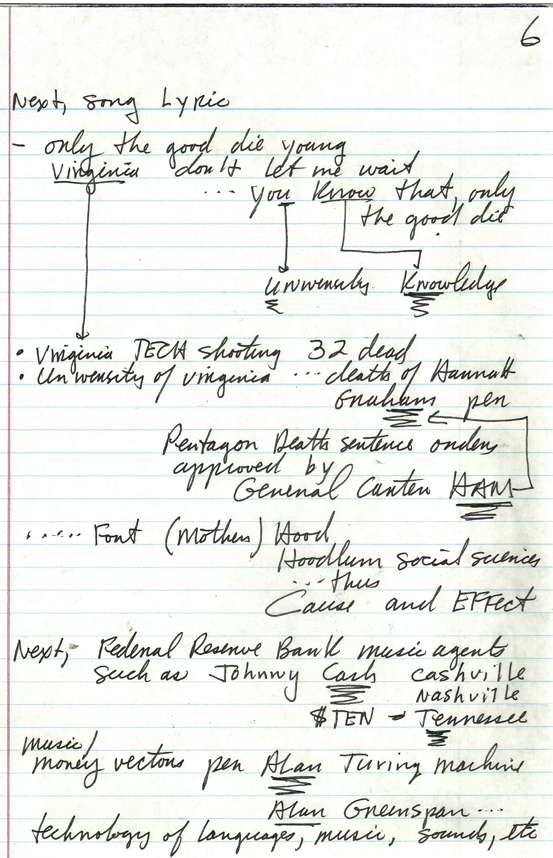 6
Next, song Lyric
- only the good die young
Virginia don't let me wait
... you Know that, only
the good die
University Knowledge
• Virginia TECH shooting 32 dead
• University of Virginia ... deaths of Hannah
Grahams per
Pentagon Death sentence orders
approved by
General Carter HAM
..... Font (Mothers) Hood
Hoodlum social sciences
... thus
Cause and EFFECT
Next, Federal Reserve Bank music agents
such as Johnny Cash cashville
Nashville
$TEN - Tennessee
music/
money vectors per Alan Turing machine
Alan Greenspan ...
technology of languages, music, sounds, etc